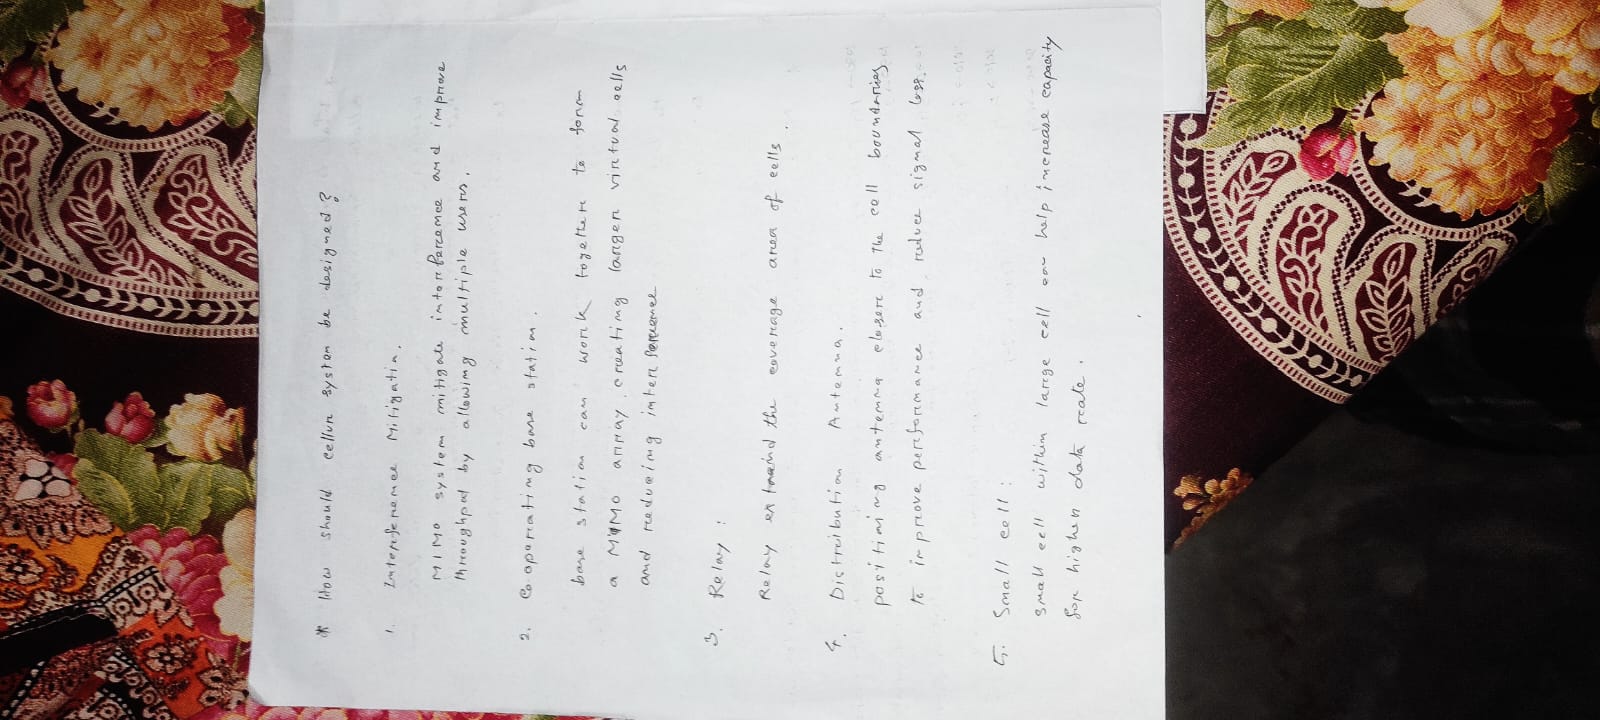 * How should cellur system be designed?
1. Interference Mitigatin.
MIMO system mitigate interference and improve
throughput by allowing multiple users.
2. Co operating base station.
base station can work together to form
a MIMO array, creating larger virtual cells
and reducing interference
3. Relay :
Relay extend the coverage area of cells.
4. Distribution Antenna.
positining antenna closer to the cell boundaries
to improve performance and reduce signal loss.
5. Small cell :
small cell within large cell can help increase capacity
for higher data rate.